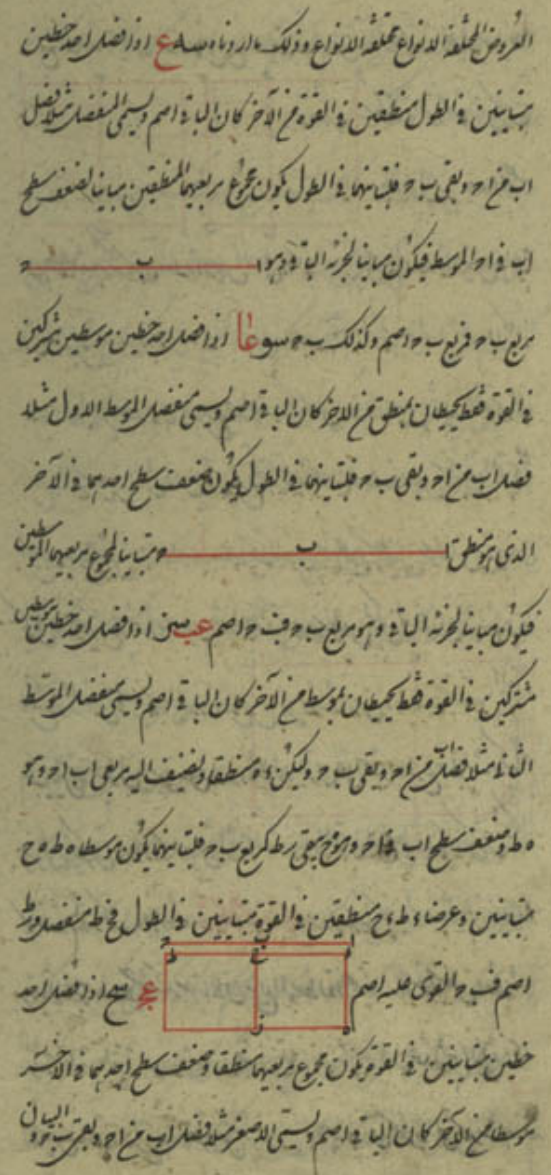 العروض المختلفة الانواع مختلفة الانواع وذلك ما اردناه سه ع اذا فصل احد خطين
متباينين في الطول منطقين في القوة من الآخر كان الباقي اصم ويسمى المنفصل مثلا فصل
اب من اح وبقى ب ح فلتباينهما في الطول يكون مجموع مربعيهما المنطقين مباينا لضعف سطح
اب في اح الموسط فيكون مباينا لجزئه الباقي وهو ا ب ح
مربع ب ح فمربع ب ح اصم وكذلك ب ح سو عا اذا فصل احد خطين موسطين مشتركين
في القوة فقط يحيطان بمنطق من الاخر كان الباقي اصم ويسمى منفصل الموسط الاول مثلا
فصل اب من اح وبقى ب ح فلتباينهما في الطول يكون ضعف سطح احدهما في الآخر
الذى هو منطق ا ب ح متباينا لمجموع مربعيهما الموسطين
فيكون مباينا لجزئه الباقي وهو مربع ب ح فب ح اصم عب سز اذا فصل احد خطين موسطين
مشتركين في القوة فقط يحيطان بموسط من الآخر كان الباقي اصم ويسمى منفصل الموسط
الثانى مثلا فصل اب من اح وبقى ب ح وليكن ء ه منطقا ونضيف اليه مربعى اب اح وهو
ه ط وضعف سطح اب في اح وهو ه ح يبقى ر ط كمربع ب ح فلتباينهما يكون موسطا ه ط ه ح
متباينين وعرضا ء ط ء ح منطقين في القوة متباينين في الطول فح ط منفصل و ر ط
اصم فب ح القوى عليه اصم عج سح اذا فصل احد
خطين متباينين في القوة يكون مجموع مربعيهما منطقا وضعف سطح احدهما في الآخر
موسطا من الآخر كان الباقي اصم ويسمى الاصغر مثلا فصل اب من اح وبقى ب ح والبيان